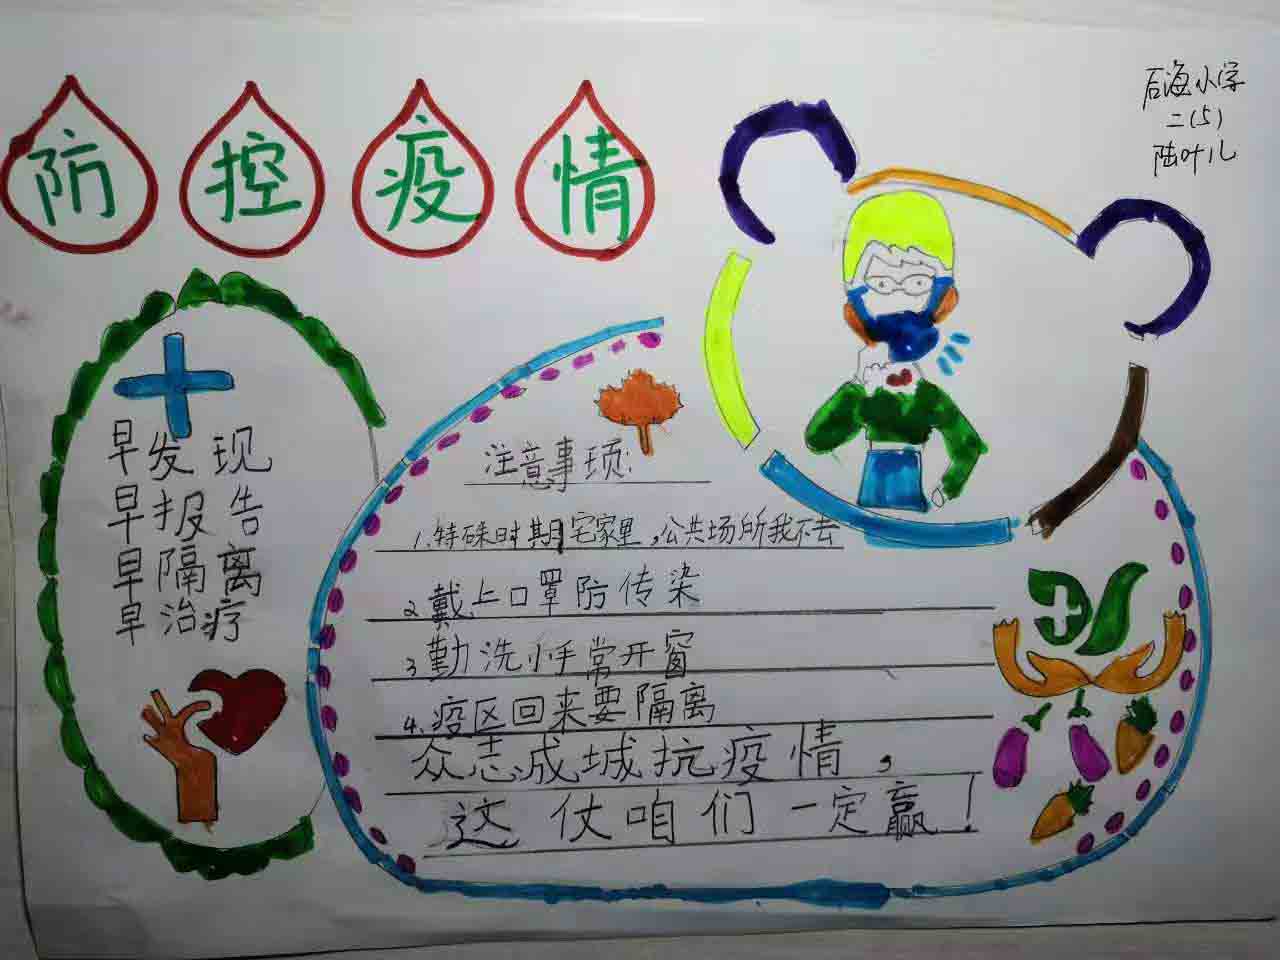 防控疫情
后海小学
二(5)
陆叶儿
早发现
早报告
早隔离
早治疗
注意事项:
1.特殊时期宅家里,公共场所我不去
2.戴上口罩防传染
3勤洗小手常开窗
4.疫区回来要隔离
众志成城抗疫情,
这仗咱们一定赢!